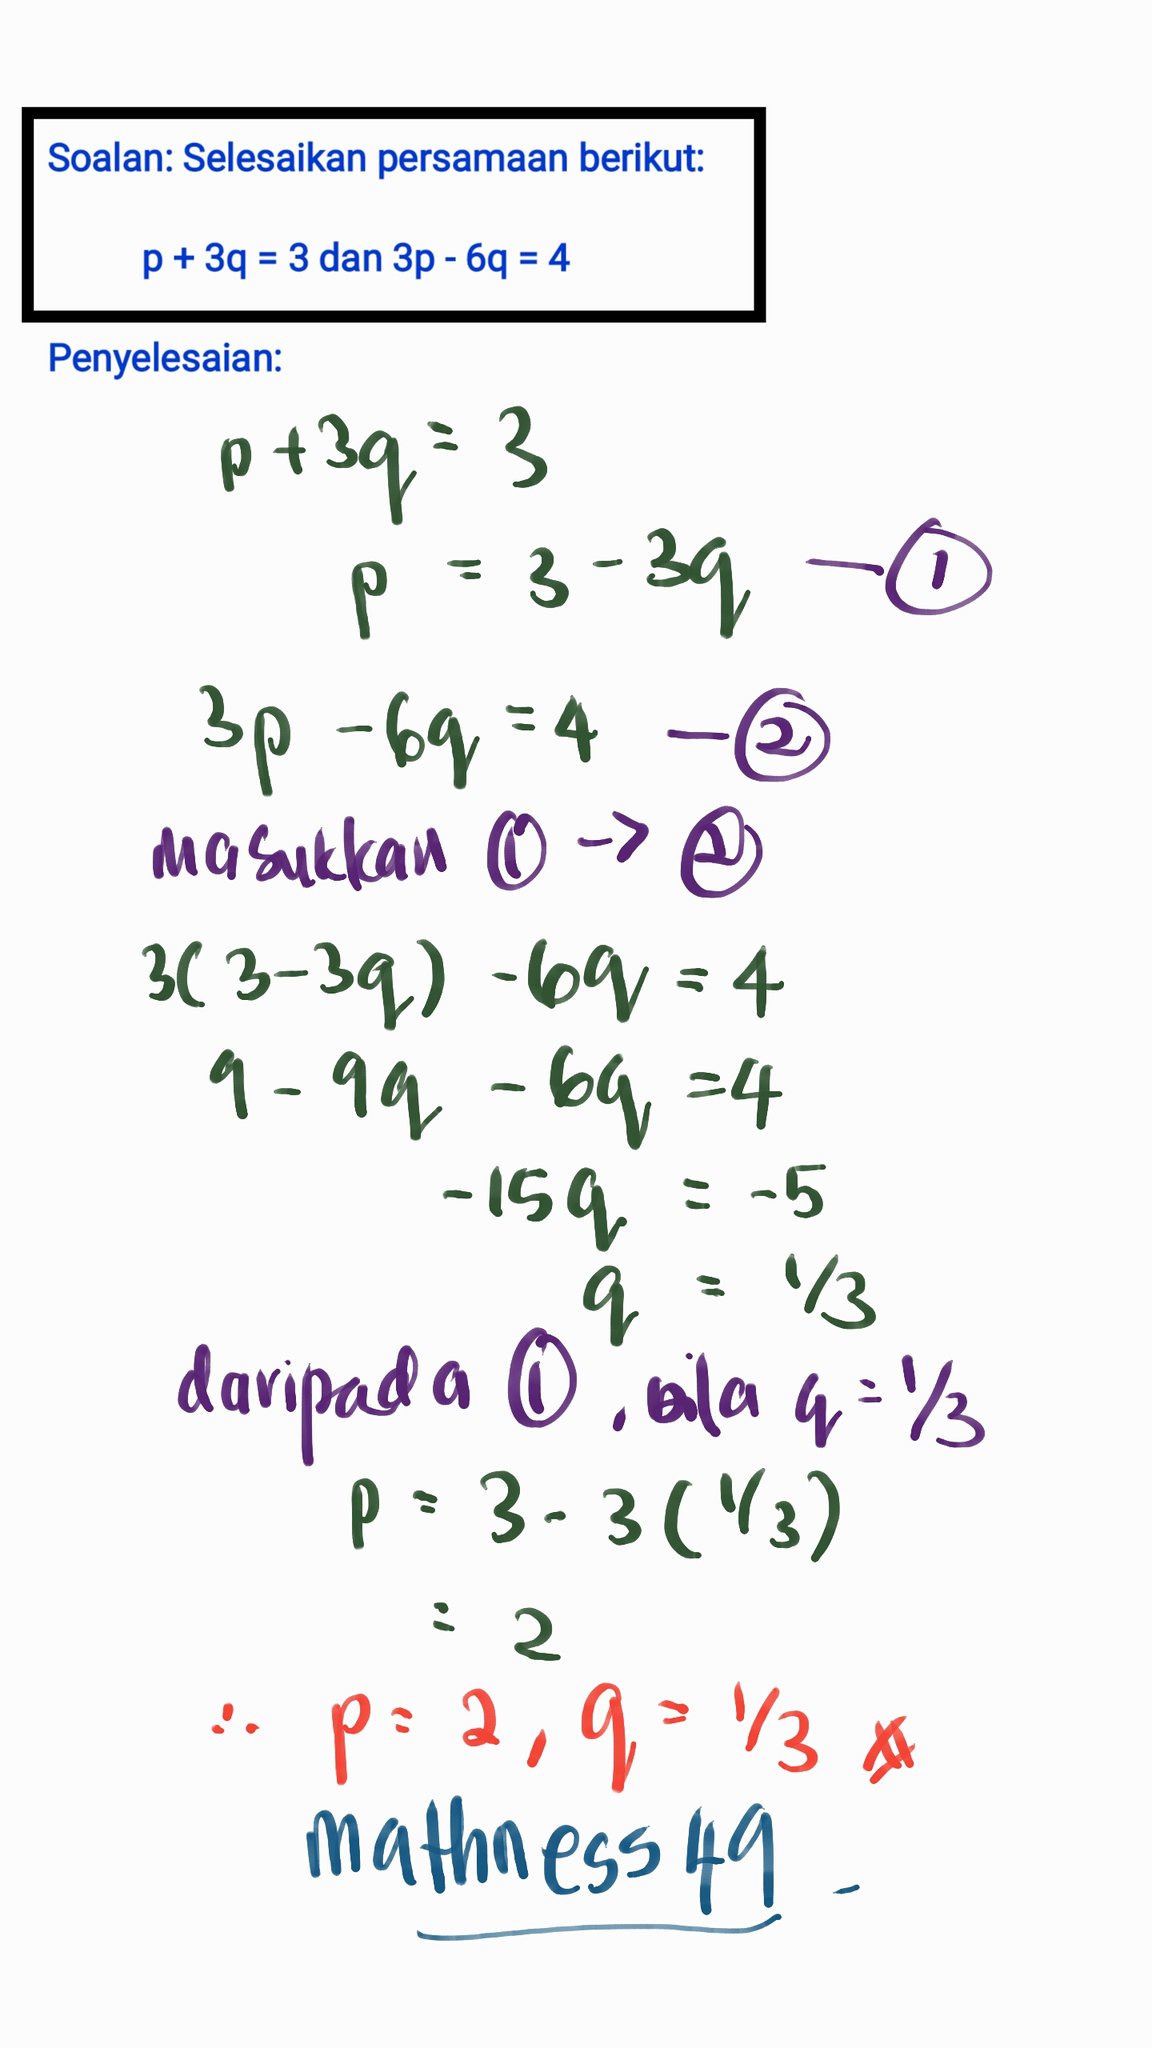 Soalan: Selesaikan persamaan berikut:
p + 3q = 3 dan 3p - 6q = 4
Penyelesaian:
p + 3q = 3
p = 3 - 3q — ①
3p - 6q = 4 — ②
masukkan ① -> ②
3(3 - 3q) - 6q = 4
9 - 9q - 6q = 4
-15q = -5
q = 1/3
daripada ①, bila q = 1/3
p = 3 - 3(1/3)
= 2
∴ p = 2, q = 1/3
mathness49